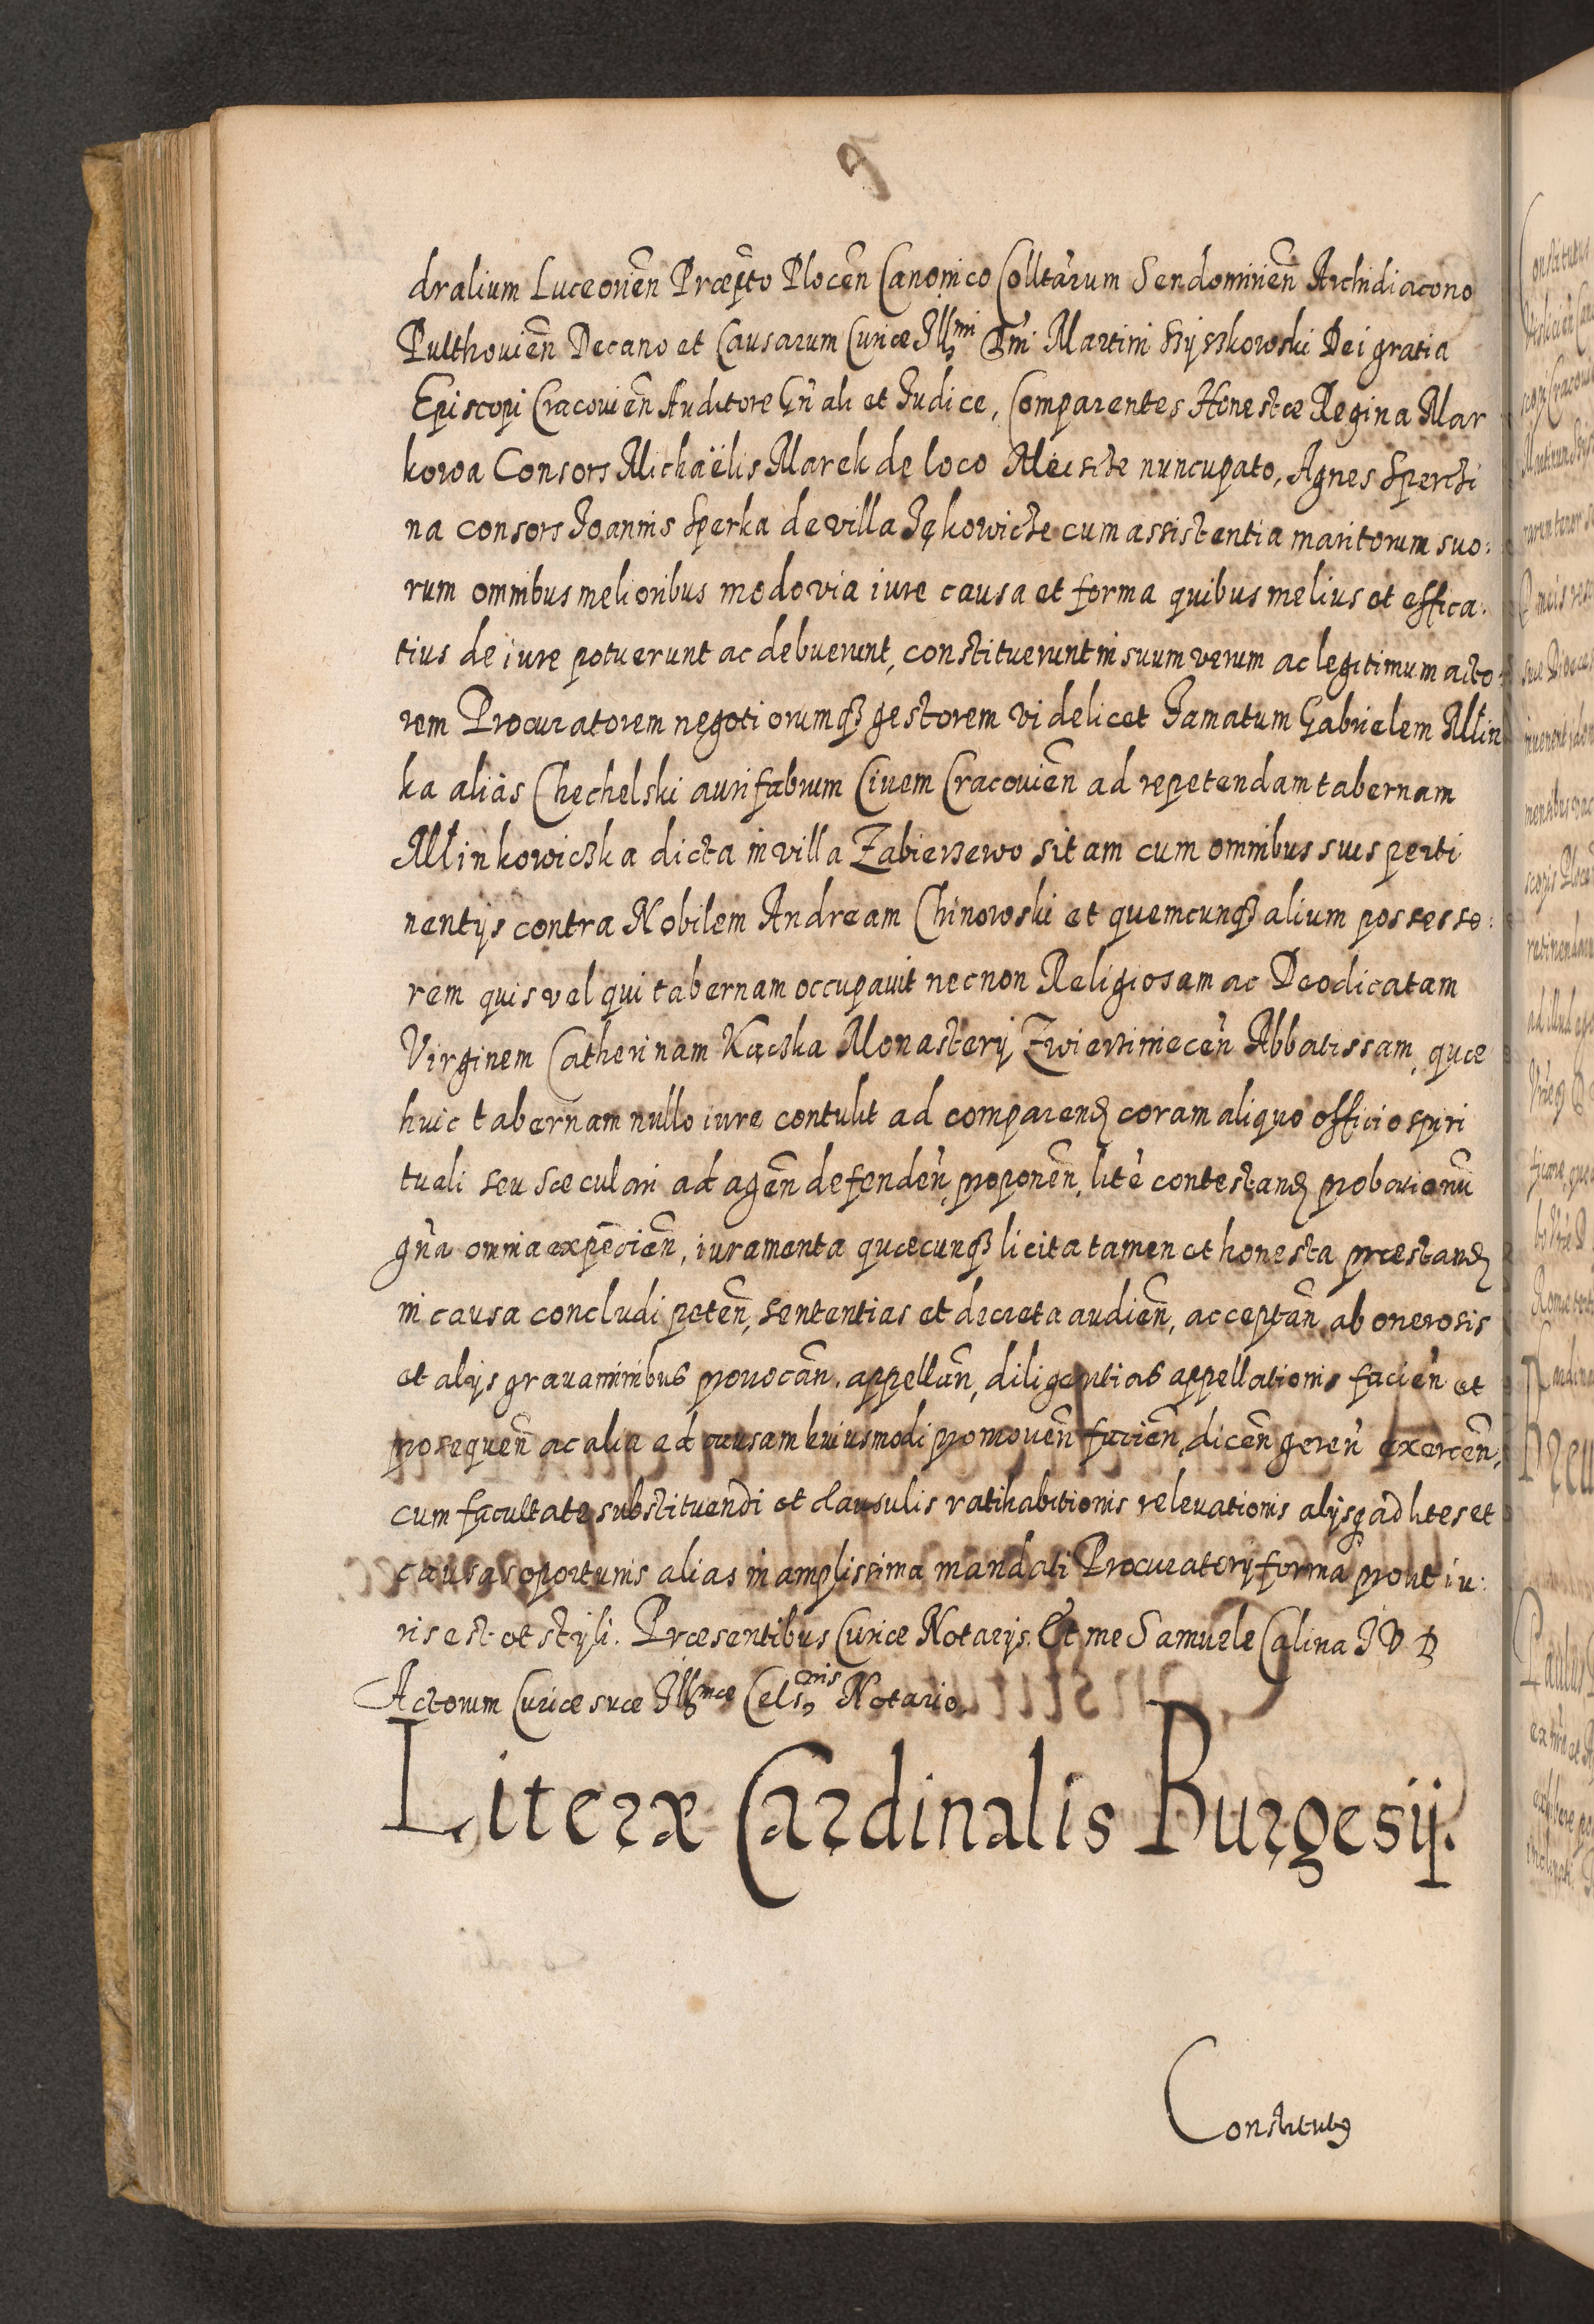 dralium Luceorien̄ Præp̄to Plocen̄ Canonico Colltãrum Sendomirien̄ Archidiacono
Pulthovien̄ Decano et Causarum Curiæ Illmi Dni Martini Szyszkowski Dei gratia
Episcopi Cracovien̄ Auditore Gn̄ali et Iudice, Comparentes Honestæ Regina Mar
kowa Consors Michaëlis Marek de loco nuncupato, Agnes Sperczi
na consors Ioannis Sperka de villa cum assistentia maritorum suo:
rum omnibus melioribus modo via iure causa et forma quibus melius et effica:
tius de iure potuerunt ac debuerunt, constituerunt in suum verum ac legitimum acto
rem Procuratorem negotiorumqȝ gestorem videlicet Famatum Gabrielem Młin
ka aliàs Chechelski aurifabrum Civem Cracovien̄ ad repetendam tabernam
Młinkowiczka dicta in villa Zabierzewo sitam cum omnibus suis perti
nentijs contra Nobilem Andream Chinowski et quemcunqȝ alium possesso:
rem quis vel qui tabernam occupavit necnon Religiosam ac Deodicatam
Virginem Catherinam Kączka Monasterij Zwierziniecen̄ Abbatissam, quæ
huic tabernam nullo iure contulit ad comparenđ coram aliquo officio spiri
tuali seu sæculari ad agen̄ defenden̄, proponen̄, lite contestanđ probationū
gn̄a omnia expedien̄, iuramenta quæcunqȝ licita tamen et honesta præstanđ
in causa concludi peten̄, sententias et decreta audien̄, acceptan̄, ab onerosis
et alijs gravaminibus provocan̄, appellan̄, diligentias appellationis facien̄ et
prosequen̄ ac alia ad causam huiusmodi promoven̄ facien̄, dicen̄ geren̄ exercen̄,
cum facultate substituendi et clausulis ratihabitionis relevationis alijsqȝ ad lites et
causas oportunis alias in amplissima mandati Procuratorij forma prout iu:
ris est et styli. Præsentibus Curiæ Notarijs. Et me Samuele Calina I V D
Actorum Curiæ suæ Illmæ Celsnis Notario.
Literæ Cardinalis Burgesij.
Constitutꝯ